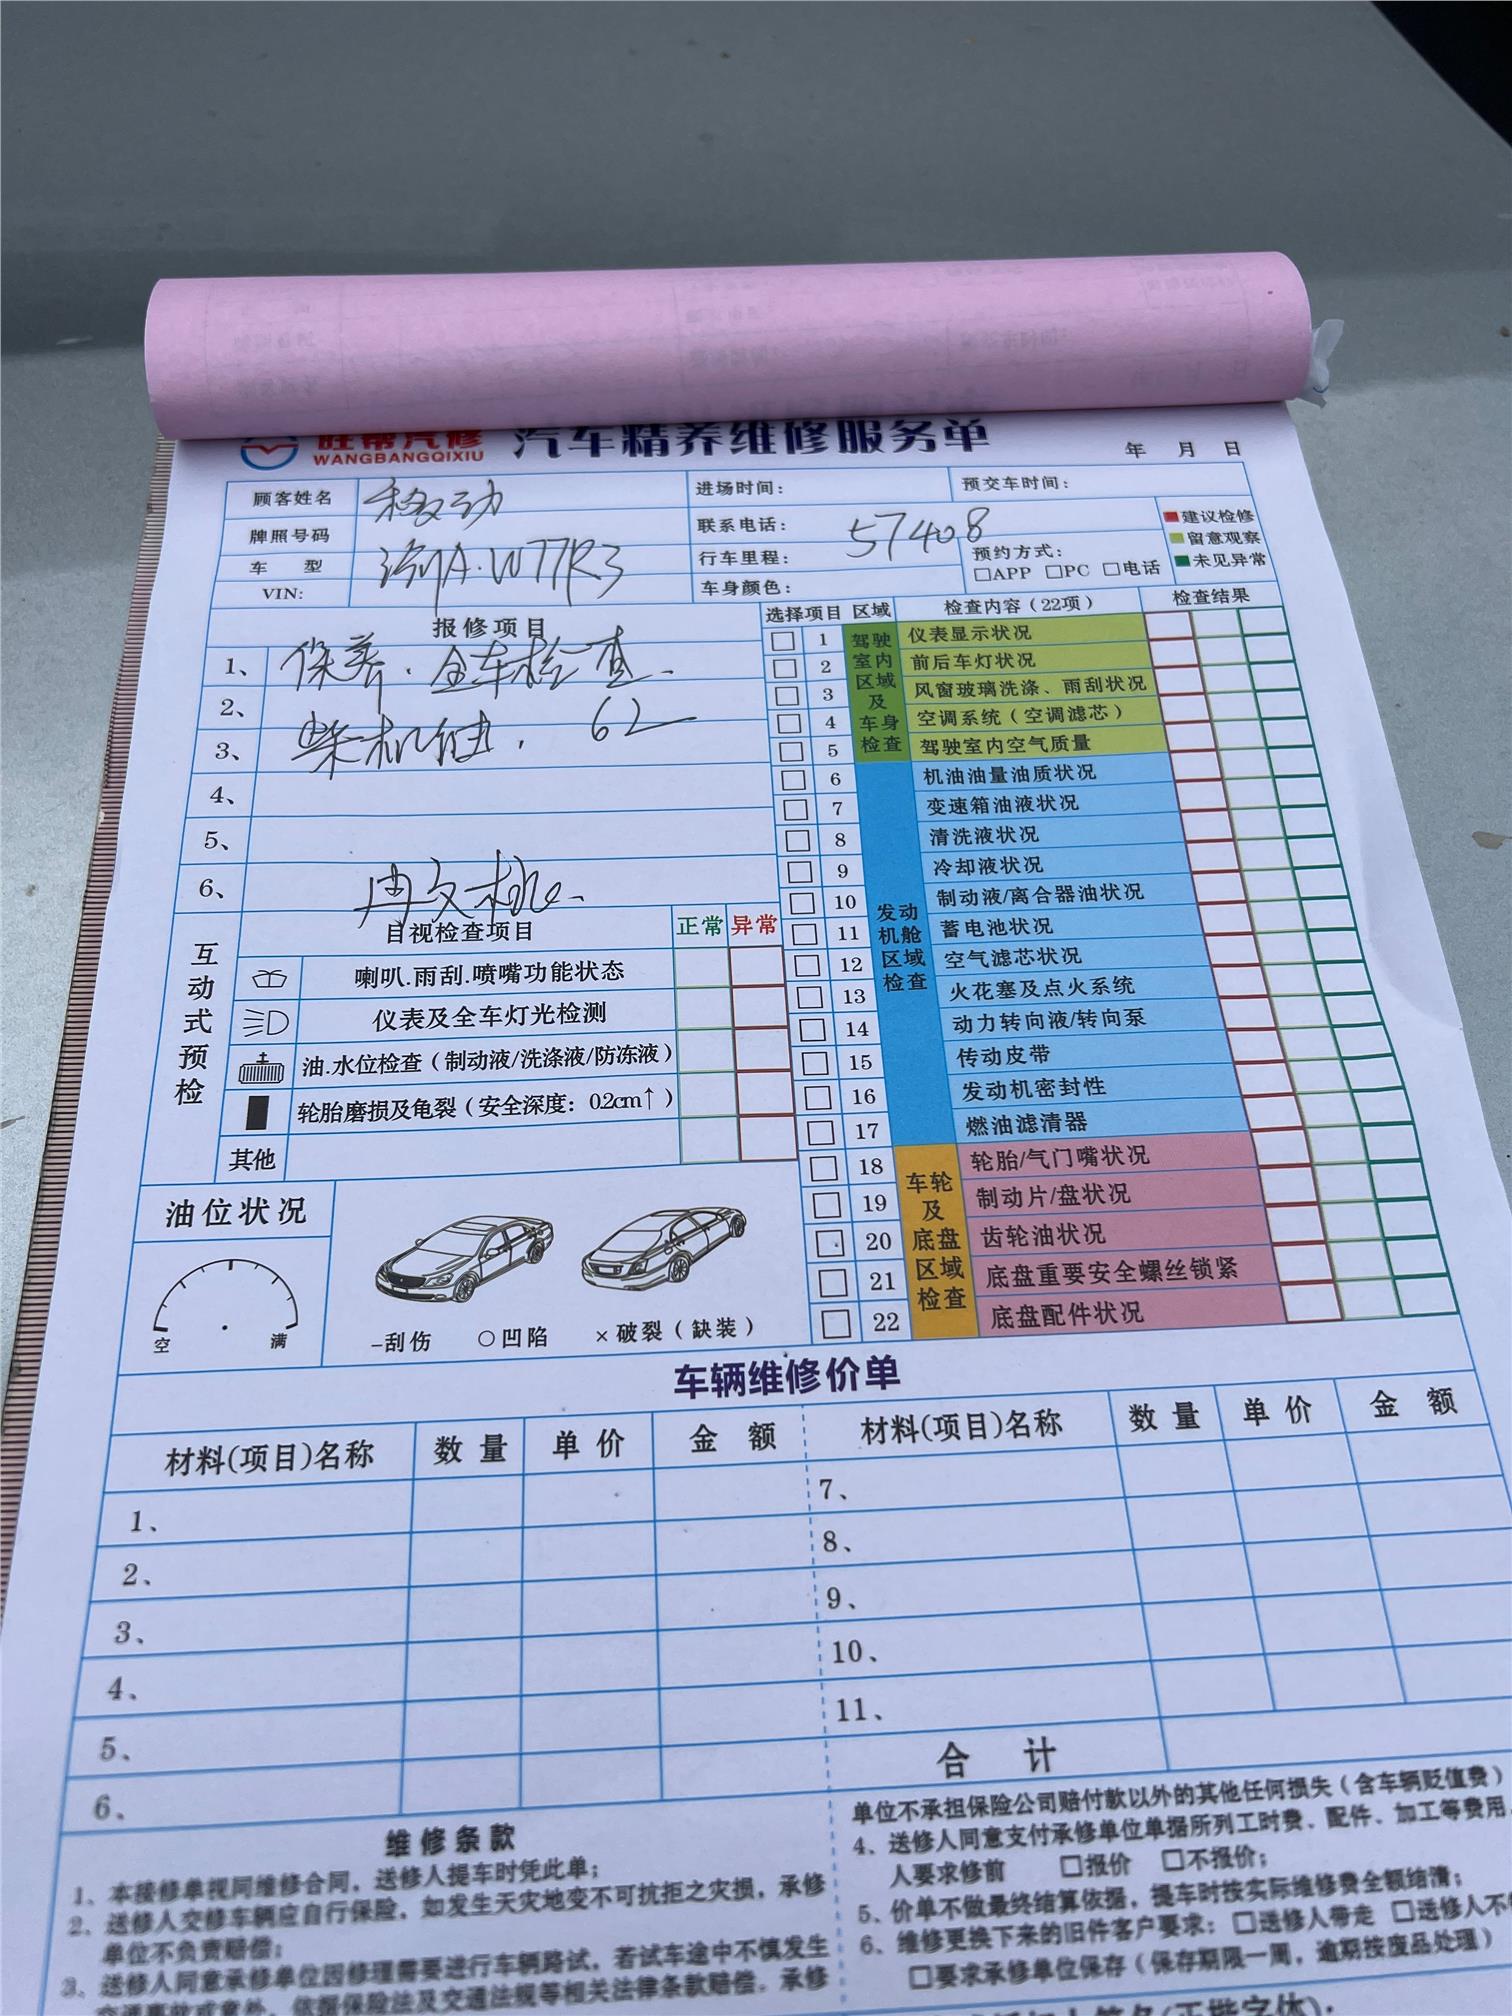 旺帮汽修 汽车精养维修服务单
WANGBANGQIXIU
年 月 日
顾客姓名 移动 进场时间： 预交车时间：
牌照号码 渝A·W77R3 联系电话：
车 型 行车里程： 57408 预约方式：
□APP □PC □电话
VIN: 车身颜色：
建议检修
留意观察
未见异常
报修项目
1、保养·全车检查
2、
3、柴机 62
4、
5、
6、冉文
互动式预检
目视检查项目 正常 异常
喇叭.雨刮.喷嘴功能状态
仪表及全车灯光检测
油.水位检查（制动液/洗涤液/防冻液）
轮胎磨损及龟裂（安全深度：0.2cm↑）
其他
油位状况
空 满
-刮伤 ○凹陷 ×破裂（缺装）
选择项目 区域 检查内容（22项） 检查结果
驾驶室内区域及车身检查
1 仪表显示状况
2 前后车灯状况
3 风窗玻璃洗涤、雨刮状况
4 空调系统（空调滤芯）
5 驾驶室内空气质量
发动机舱区域检查
6 机油油量油质状况
7 变速箱油液状况
8 清洗液状况
9 冷却液状况
10 制动液/离合器油状况
11 蓄电池状况
12 空气滤芯状况
13 火花塞及点火系统
14 动力转向液/转向泵
15 传动皮带
16 发动机密封性
17 燃油滤清器
车轮及底盘区域检查
18 轮胎/气门嘴状况
19 制动片/盘状况
20 齿轮油状况
21 底盘重要安全螺丝锁紧
22 底盘配件状况
车辆维修价单
材料(项目)名称 数量 单价 金额 材料(项目)名称 数量 单价 金额
1、 7、
2、 8、
3、 9、
4、 10、
5、 11、
6、 合计
维修条款
1、本接修单视同维修合同，送修人提车时凭此单；
2、送修人交修车辆应自行保险，如发生天灾地变不可抗拒之灾损，承修
单位不负责赔偿；
3、送修人同意承修单位因修理需要进行车辆路试，若试车途中不慎发生
交通事故或意外，依据保险法及交通法规等相关法律条款赔偿。承修
单位不承担保险公司赔付款以外的其他任何损失（含车辆贬值费）
4、送修人同意支付承修单位单据所列工时费、配件、加工等费用
人要求修前 □报价 □不报价；
5、价单不做最终结算依据，提车时按实际维修费全额结清；
6、维修更换下来的旧件客户要求：□送修人带走 □送修人不
□要求承修单位保存（保存期限一周，逾期按废品处理）
(正楷字体)